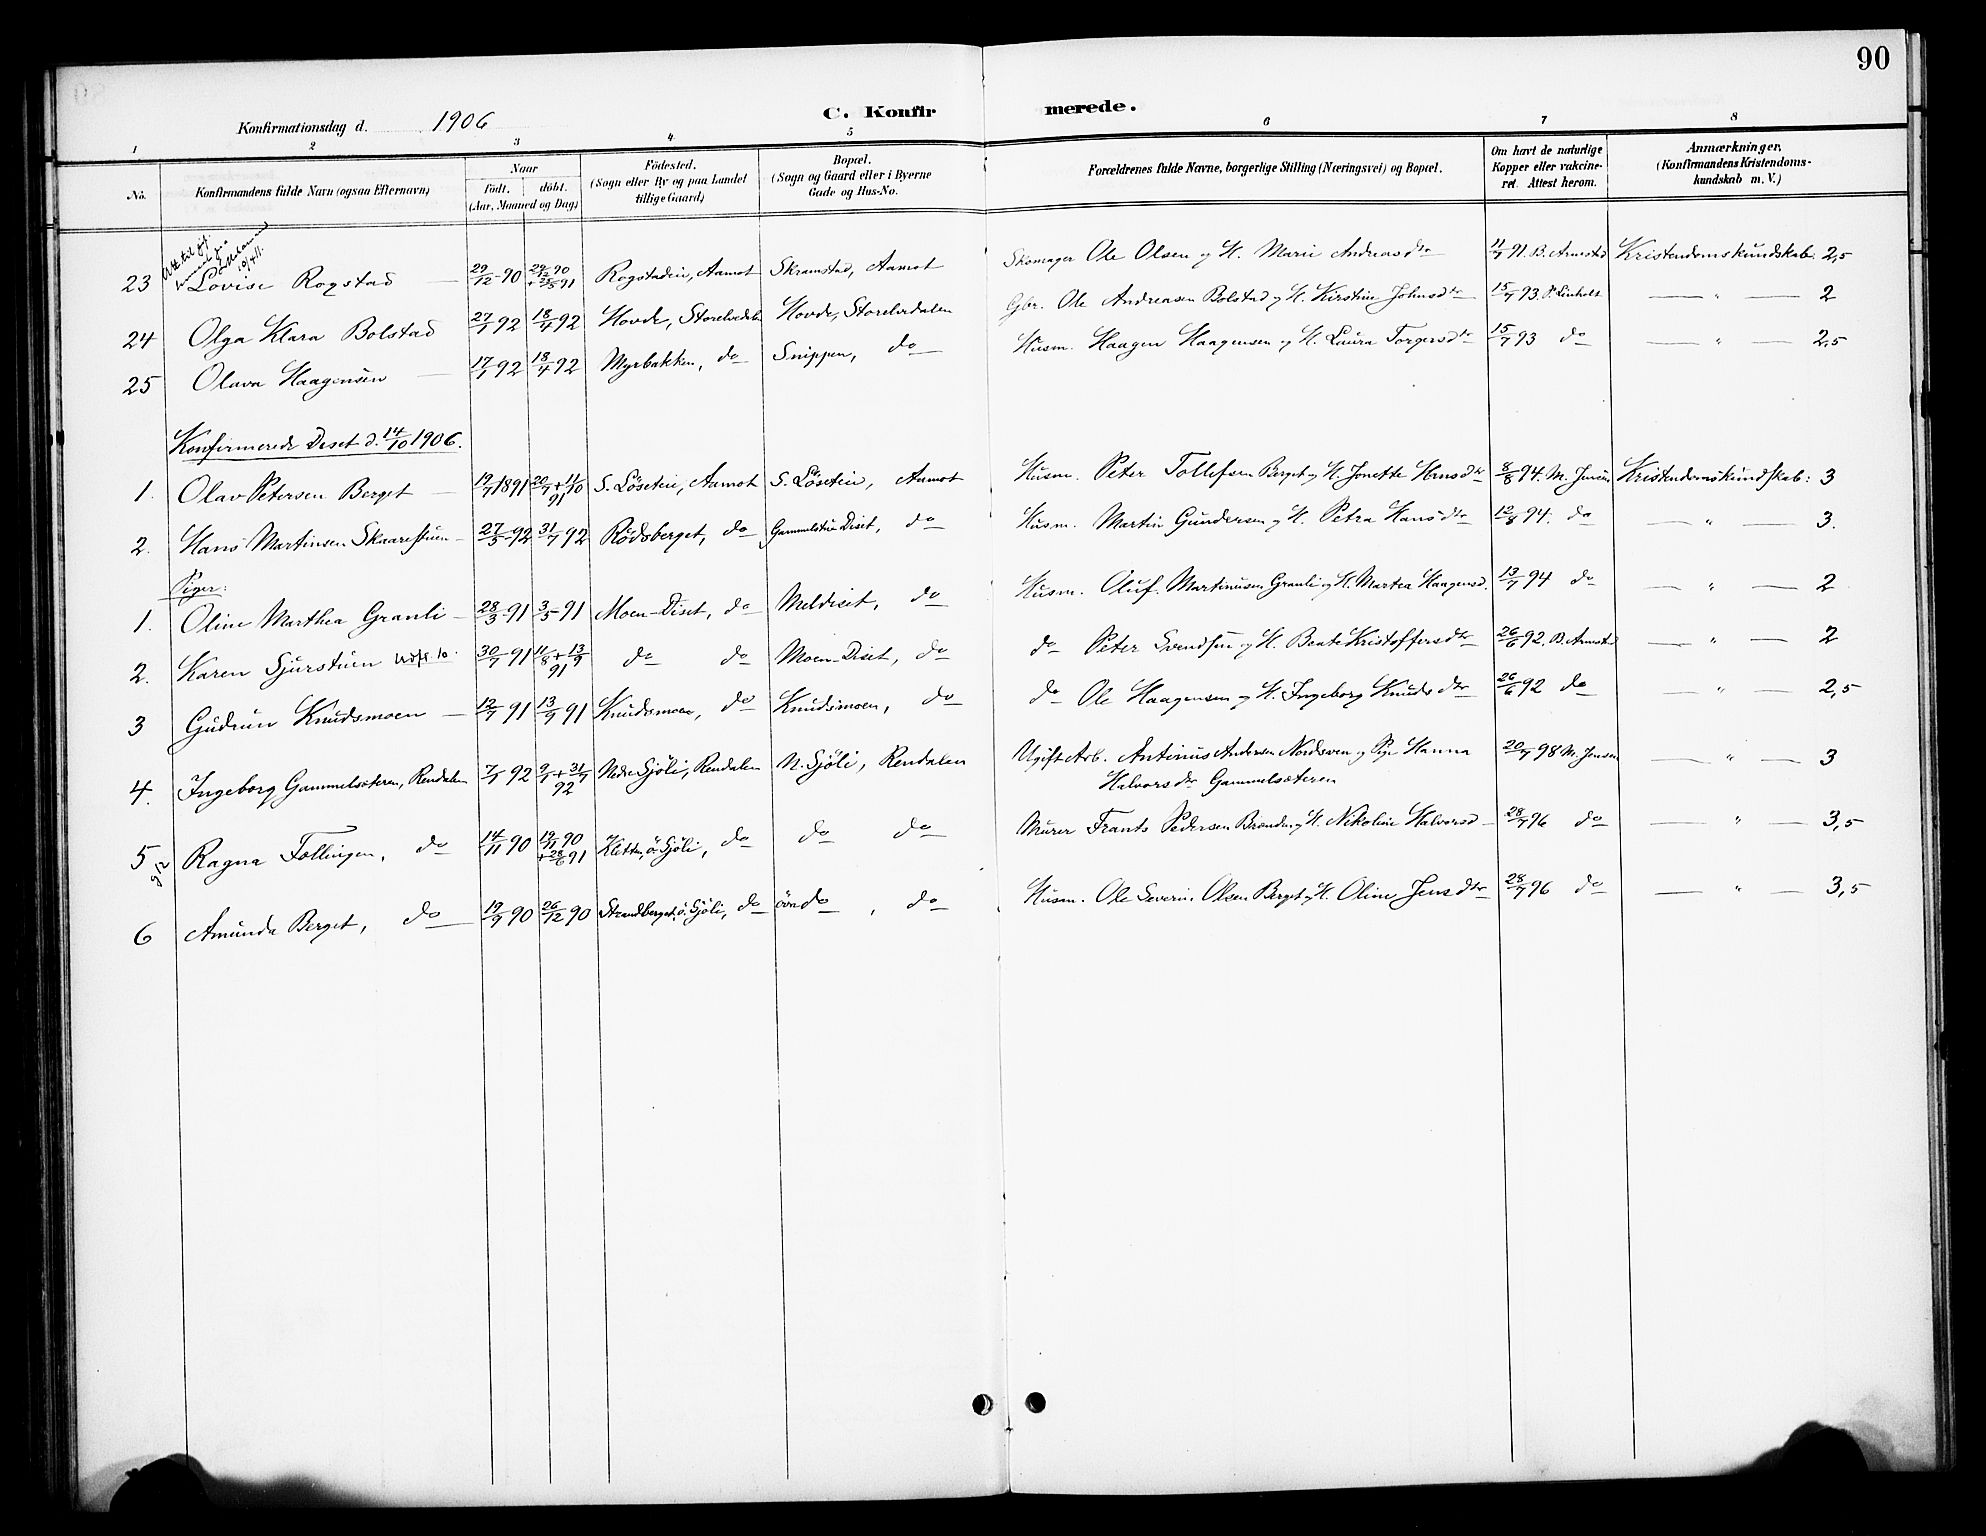 90
Konfirmationsdag d. 1906
C. Konfirmerede.
1 2 3 4 5 6 7 8
No. Konfirmandens fulde Navn (ogsaa Efternavn) Naar født. døbt. (Aar, Maaned og Dag) Fødested. (Sogn eller By og paa Landet tillige Gaard) Bopæl. (Sogn og Gaard eller i Byerne Gade og Hus-No. Forældrenes fulde Navne, borgerlige Stilling (Næringsvei) og Bopæl. Om havt de naturlige Kopper eller vakcineret. Attest herom. Anmærkninger. (Konfirmandens Kristendomskundskab m. V.)
23 Lovise Rogstad 29/12-90 Rogstadeie, Aamot Skramstad, Aamot Skomager Ole Olsen og H. Marie Andreasdtr 91. B. Armstad Kristendomskundskab: 2,5
24 Olga Klara Bolstad 27/1 92 18/4 92 Hovde, Storelvedalen Hovde, Storelvedalen Gbr. Ole Andreasen Bolstad og H. Kirstine Johnsdtr 15/7 93. P. Linholt — " — 2
25 Olava Haagensen 17/1 92 18/4 92 Myrbakken, do Snippen, do Husm. Haagen Haagensen og H. Laura Torgersdtr 15/7 93 do — " — 2,5
Konfirmerede Deset d. 14/10 1906.
1. Olav Petersen Berget 19/7 1891 20/7 + 11/10 91 S. Løseteie, Aamot S. Løseteie, Aamot Husm. Peter Tollefsen Berget og H. Jonette Hansdtr 8/8 94. M. Jensen Kristendomskundskab: 3
2. Hans Martinsen Skaarestuen 27/5-92 31/7 92 Rødsberget, do Gammelstu Diset, do Husm. Martin Gundersen og H. Petra Hansdtr 12/8 94. do — " — 3.
Piger:
1. Oline Marthea Granli 28/3-91 3/5-91 Moen-Diset, do Meldiset, do Husm. Oluf Martinusen Granli og H. Martea Haagensd. 13/7 94 do — " — 2
2. Karen Sjurstuen 30/7 91 11/8 + 13/9 91 do do Moen-Diset, do do Peter Svendsen og H. Beate Kristoffersdtr 26/6 92. B. Armstad — " — 2
3 Gudrun Knudsmoen 12/7 91 13/9 91 Knudsmoen, do Knudsmoen, do do Ole Haagensen og H. Ingeborg Knudsdtr 26/6 92 do — " — 2,5
4. Ingeborg Gammelsæteren, Rendalen 7/1 92 9/1 + 31/7 92 Nedre Sjøli, Rendalen N. Sjøli, Rendalen Ugift Arb. Antinius Andersen Nordsveen og Pige Hanna 20/7 98 M. Jensen — " — 3
Halvorsdtr Gammelsæteren
5 Ragna Follingen, do 14/11 90 19/11 90 + 28/6 91 Kletten, ö. Sjöli, do do do Murer Frants Pedersen Brænden og H. Nikoline Halvorsd 28/7 96 do — " — 3,5
6 Amunda Berget, do 19/9 90 26/12 90 Strandberget, ö. Sjöli, do övre do, do Husm. Ole Severin Olsen Berget og H. Oline Jensdtr 28/7 96 do — " — 3,5